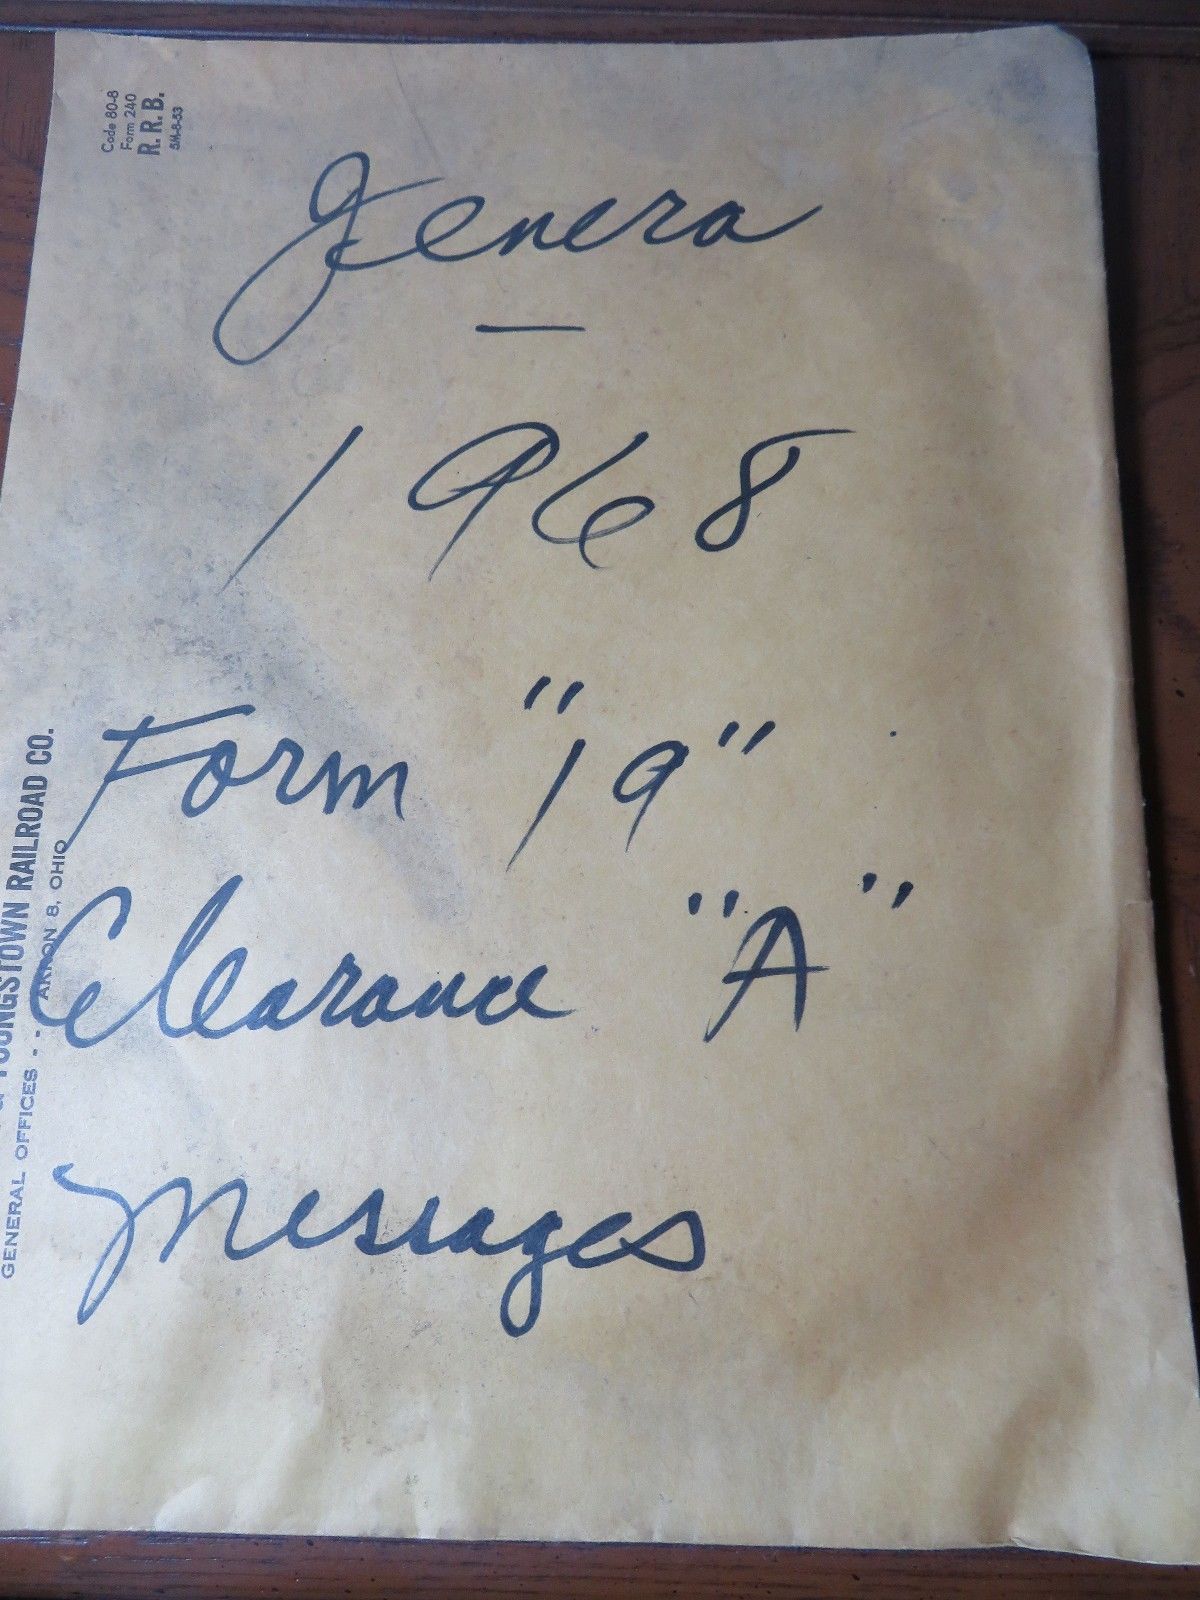 Code 80-8
Form 240
R. R. B.
5M-8-53
Jenera
1968
Form "19"
Clearance "A"
Messages
YOUNGSTOWN RAILROAD CO.
GENERAL OFFICES - - AKRON 8, OHIO